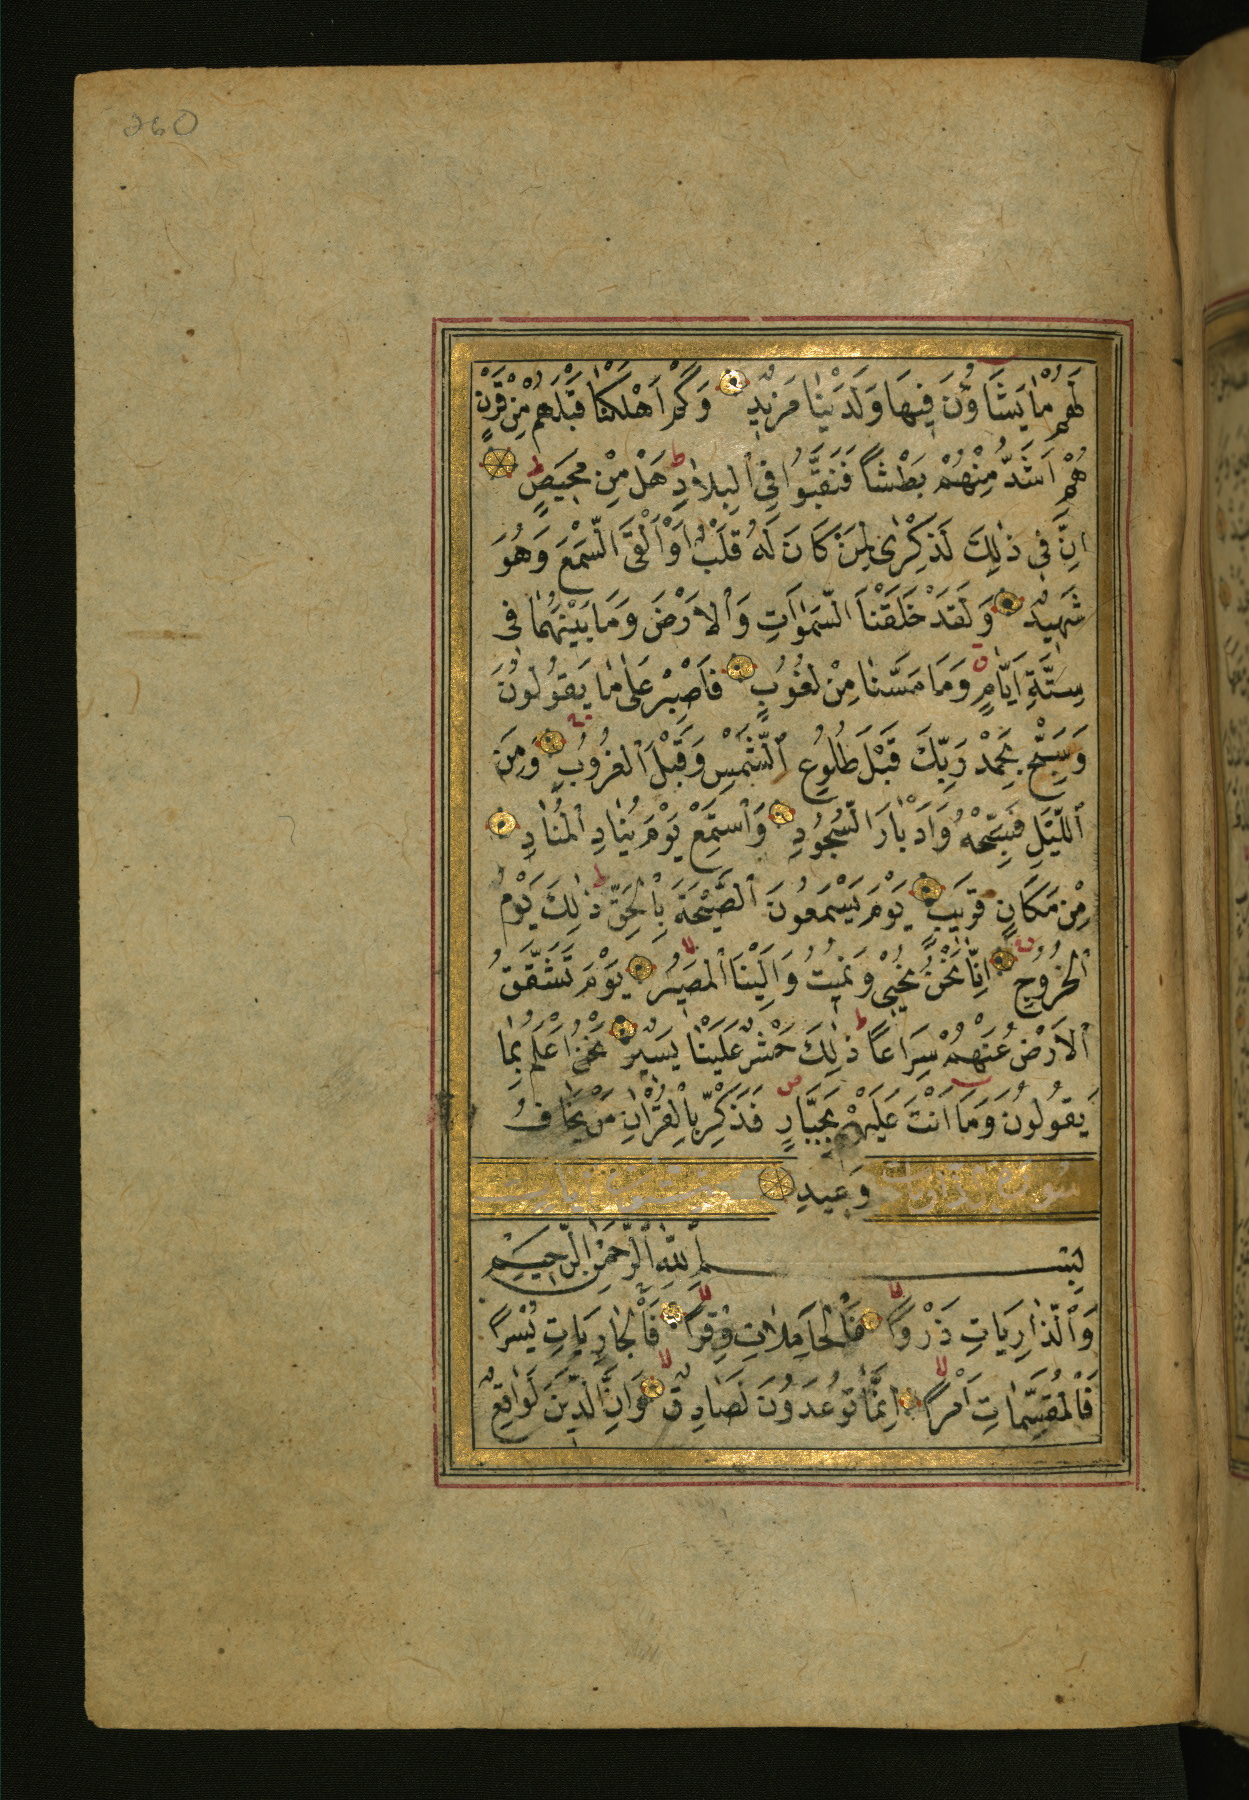 260
لَهُمْ مَا يَشَاؤُنَ فِيهَا وَلَدَيْنَا مَزِيدٌ وَكَمْ اَهْلَكْنَا قَبْلَهُمْ مِنْ قَرْنٍ
هُمْ اَشَدُّ مِنْهُمْ بَطْشًا فَنَقَّبُوا فِي ٱلْبِلَادِ ط هَلْ مِنْ مَحِيصٍ ط
اِنَّ فِي ذٰلِكَ لَذِكْرٰى لِمَنْ كَانَ لَهُ قَلْبٌ اَوْ اَلْقَى السَّمْعَ وَهُوَ
شَهِيدٌ وَلَقَدْ خَلَقْنَا السَّمٰوَاتِ وَٱلْاَرْضَ وَمَا بَيْنَهُمَا فِي
سِتَّةِ اَيَّامٍ ق وَمَا مَسَّنَا مِنْ لُغُوبٍ فَاصْبِرْ عَلٰى مَا يَقُولُونَ
وَسَبِّحْ بِحَمْدِ رَبِّكَ قَبْلَ طُلُوعِ ٱلشَّمْسِ وَقَبْلَ ٱلْغُرُوبِ وَمِنَ
ٱللَّيْلِ فَسَبِّحْهُ وَاَدْبَارَ السُّجُودِ وَٱسْتَمِعْ يَوْمَ يُنَادِ ٱلْمُنَادِ
مِنْ مَكَانٍ قَرِيبٍ يَوْمَ يَسْمَعُونَ ٱلصَّيْحَةَ بِٱلْحَقِّ ط ذٰلِكَ يَوْمُ
ٱلْخُرُوجِ اِنَّا نَحْنُ نُحْيِي وَنُمِيتُ وَاِلَيْنَا ٱلْمَصِيرُ لا يَوْمَ تَشَقَّقُ
ٱلْاَرْضُ عَنْهُمْ سِرَاعًا ط ذٰلِكَ حَشْرٌ عَلَيْنَا يَسِيرٌ نَحْنُ اَعْلَمُ بِمَا
يَقُولُونَ وَمَا اَنْتَ عَلَيْهِمْ بِجَبَّارٍ فَذَكِّرْ بِالْقُرْاٰنِ مَنْ يَخَافُ
وَعِيدِ
بِسْمِ ٱللّٰهِ ٱلرَّحْمٰنِ ٱلرَّحِيمِ
وَٱلذَّارِيَاتِ ذَرْوًا لا فَالْحَامِلَاتِ وِقْرًا لا فَالْجَارِيَاتِ يُسْرًا
فَالْمُقَسِّمَاتِ اَمْرًا لا اِنَّمَا تُوعَدُونَ لَصَادِقٌ لا وَاِنَّ الدِّينَ لَوَاقِعٌ